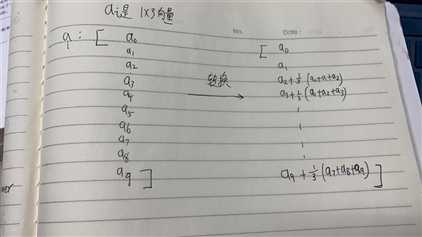 a_i是 1×3向量
a : [ a₀
a₁
a₂
a₃
a₄
a₅
a₆
a₇
a₈
a₉ ]
转换
[ a₀
a₁
a₂+⅓(a₀+a₁+a₂)
a₃+⅓(a₁+a₂+a₃)
a₉+⅓(a₇+a₈+a₉) ]